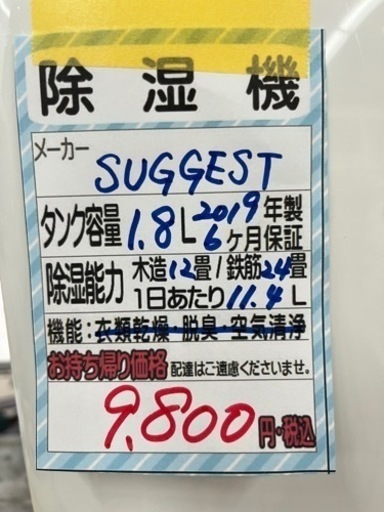 除湿機
メーカー SUGGEST
タンク容量 1.8L 2019年製
6ヶ月保証
除湿能力 木造12畳/鉄筋24畳
1日あたり11.4L
機能：衣類乾燥・脱臭・空気清浄
お持ち帰り価格 配達はご遠慮くださいませ。
9,800円・税込